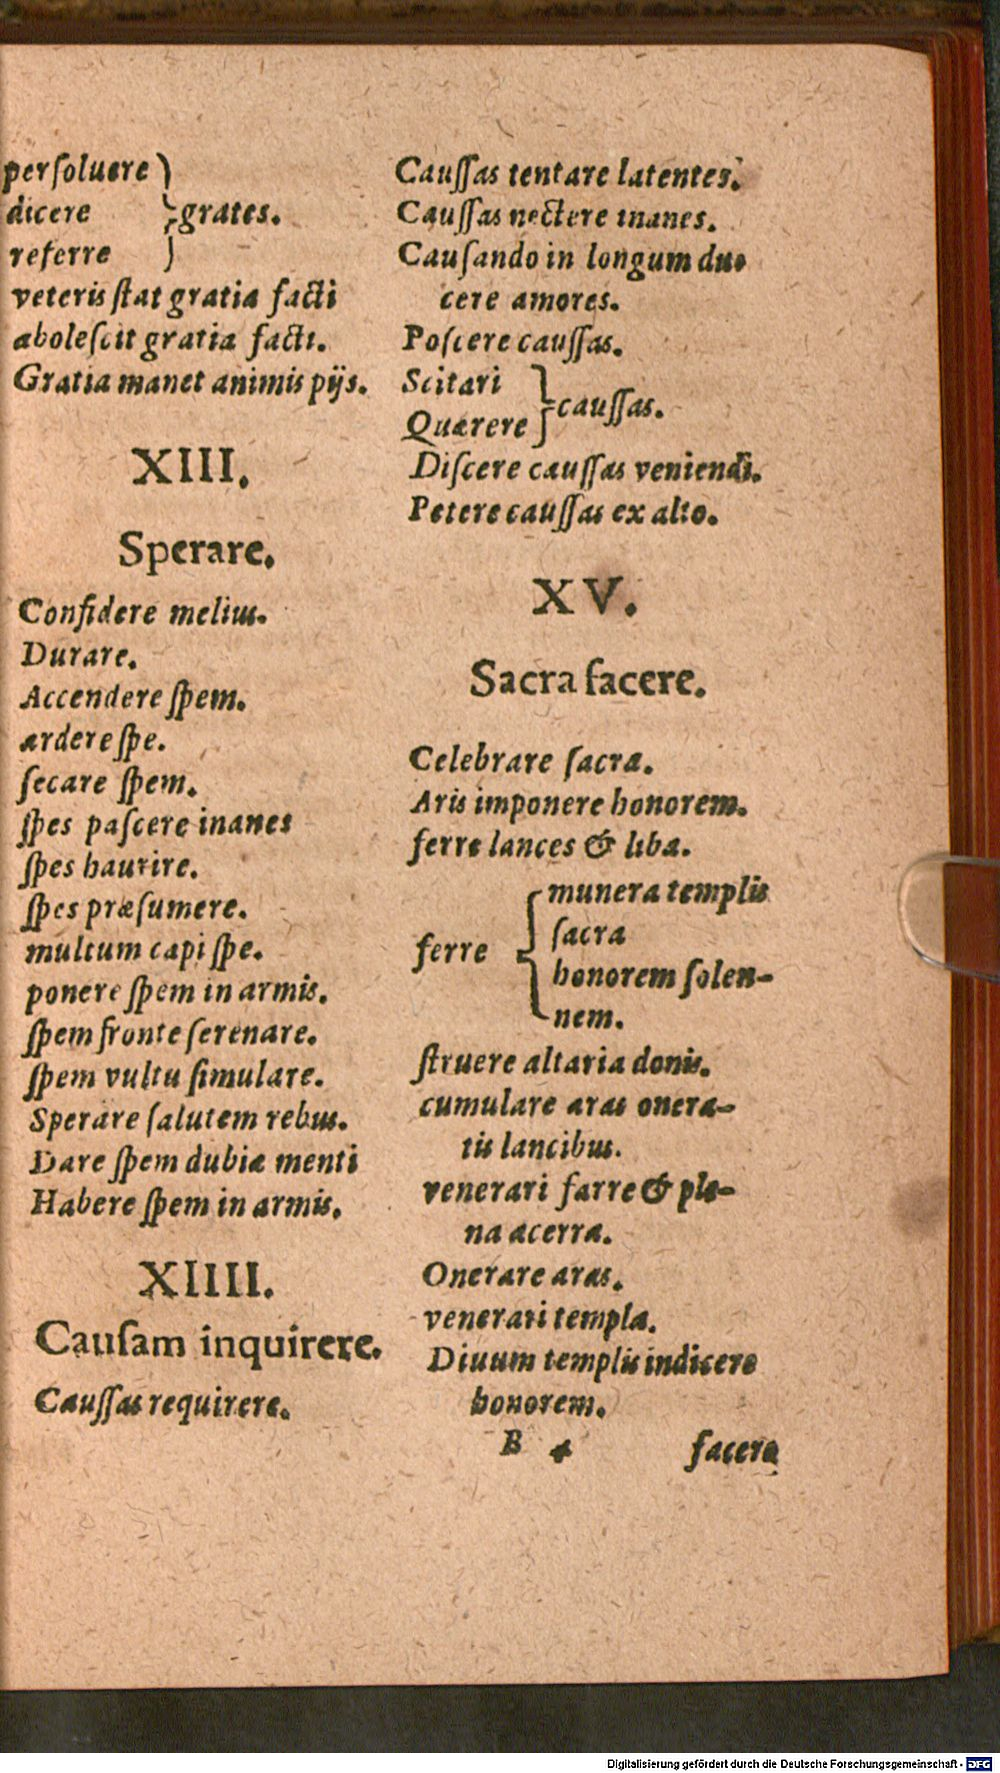 perſoluere
dicere } grates.
referre
veteris ſtat gratia facti
aboleſcit gratia facti.
Gratia manet animis pijs.
XIII.
Sperare.
Confidere melius.
Durare.
Accendere ſpem.
ardere ſpe.
ſecare ſpem.
ſpes paſcere inanes
ſpes haurire.
ſpes præſumere.
multum capi ſpe.
ponere ſpem in armis.
ſpem fronte ſerenare.
ſpem vultu ſimulare.
Sperare ſalutem rebus.
Dare ſpem dubiæ menti
Habere ſpem in armis.
XIIII.
Cauſam inquirere.
Cauſſas requirere.
Cauſſas tentare latentes.
Cauſſas nectere inanes.
Cauſando in longum du-
cere amores.
Poſcere cauſſas.
Scitari
Quærere } cauſſas.
Diſcere cauſſas veniendi.
Petere cauſſas ex alto.
XV.
Sacra facere.
Celebrare ſacra.
Aris imponere honorem.
ferre lances & liba.
ferre { munera templis
ſacra
honorem ſolen-
nem.
ſtruere altaria donis.
cumulare aras onera-
tis lancibus.
venerari farre & ple-
na acerra.
Onerare aras.
venerari templa.
Diuum templis indicere
honorem.
B 4 facere
Digitalisierung gefördert durch die Deutsche Forschungsgemeinschaft - DFG